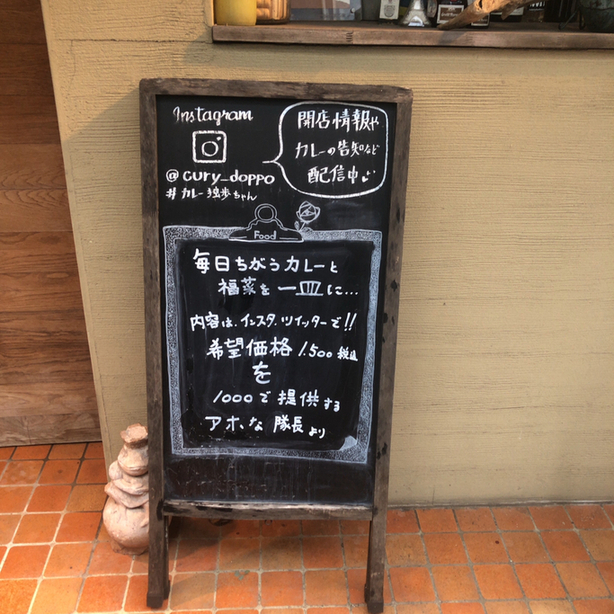 Instagram
開店情報や
カレーの告知など
配信中♪
@cury_doppo
#カレー独歩ちゃん
Food
毎日ちがうカレーと
福菜を一皿に...
内容は、インスタ、ツイッターで!!
希望価格1,500税込
を
1000で提供する
アホな隊長より